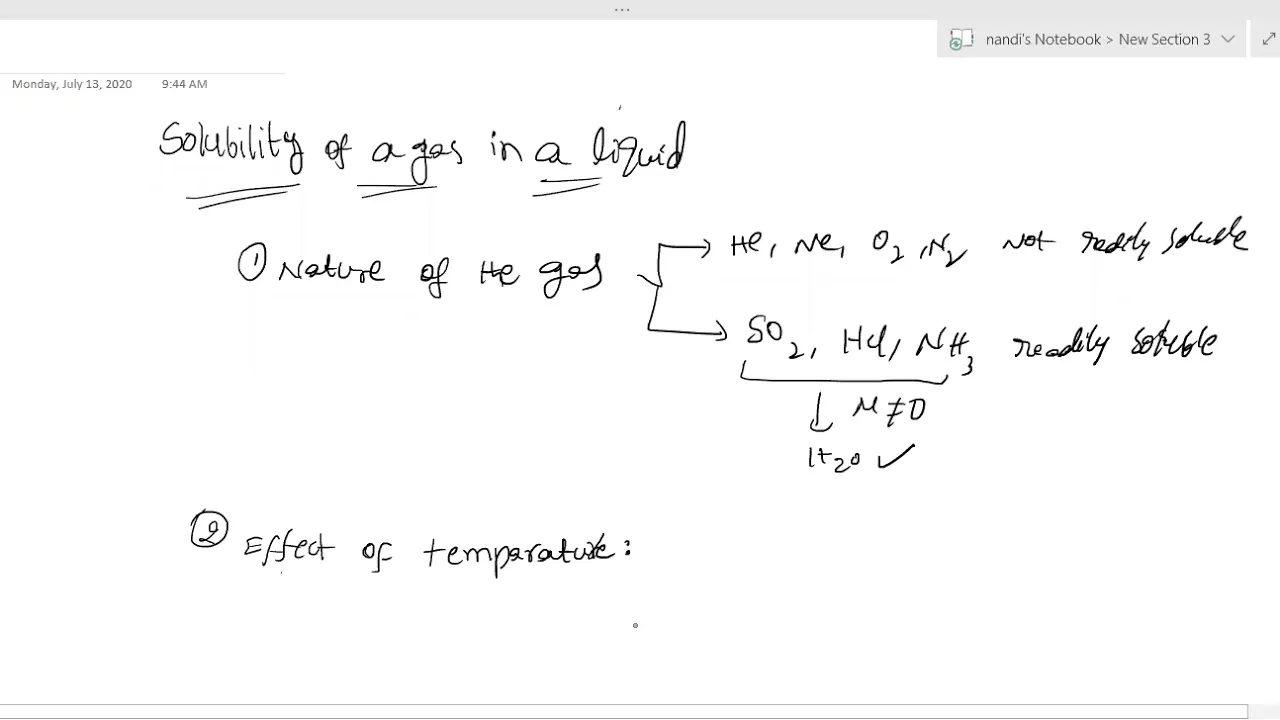 ...
nandi's Notebook > New Section 3
Monday, July 13, 2020 9:44 AM
Solubility of a gas in a liquid
① Nature of the gas
He, Ne, O₂, N₂ Not readily soluble
SO₂, HCl, NH₃ readily soluble
μ ≠ 0
H₂O ✓
② Effect of temparature: